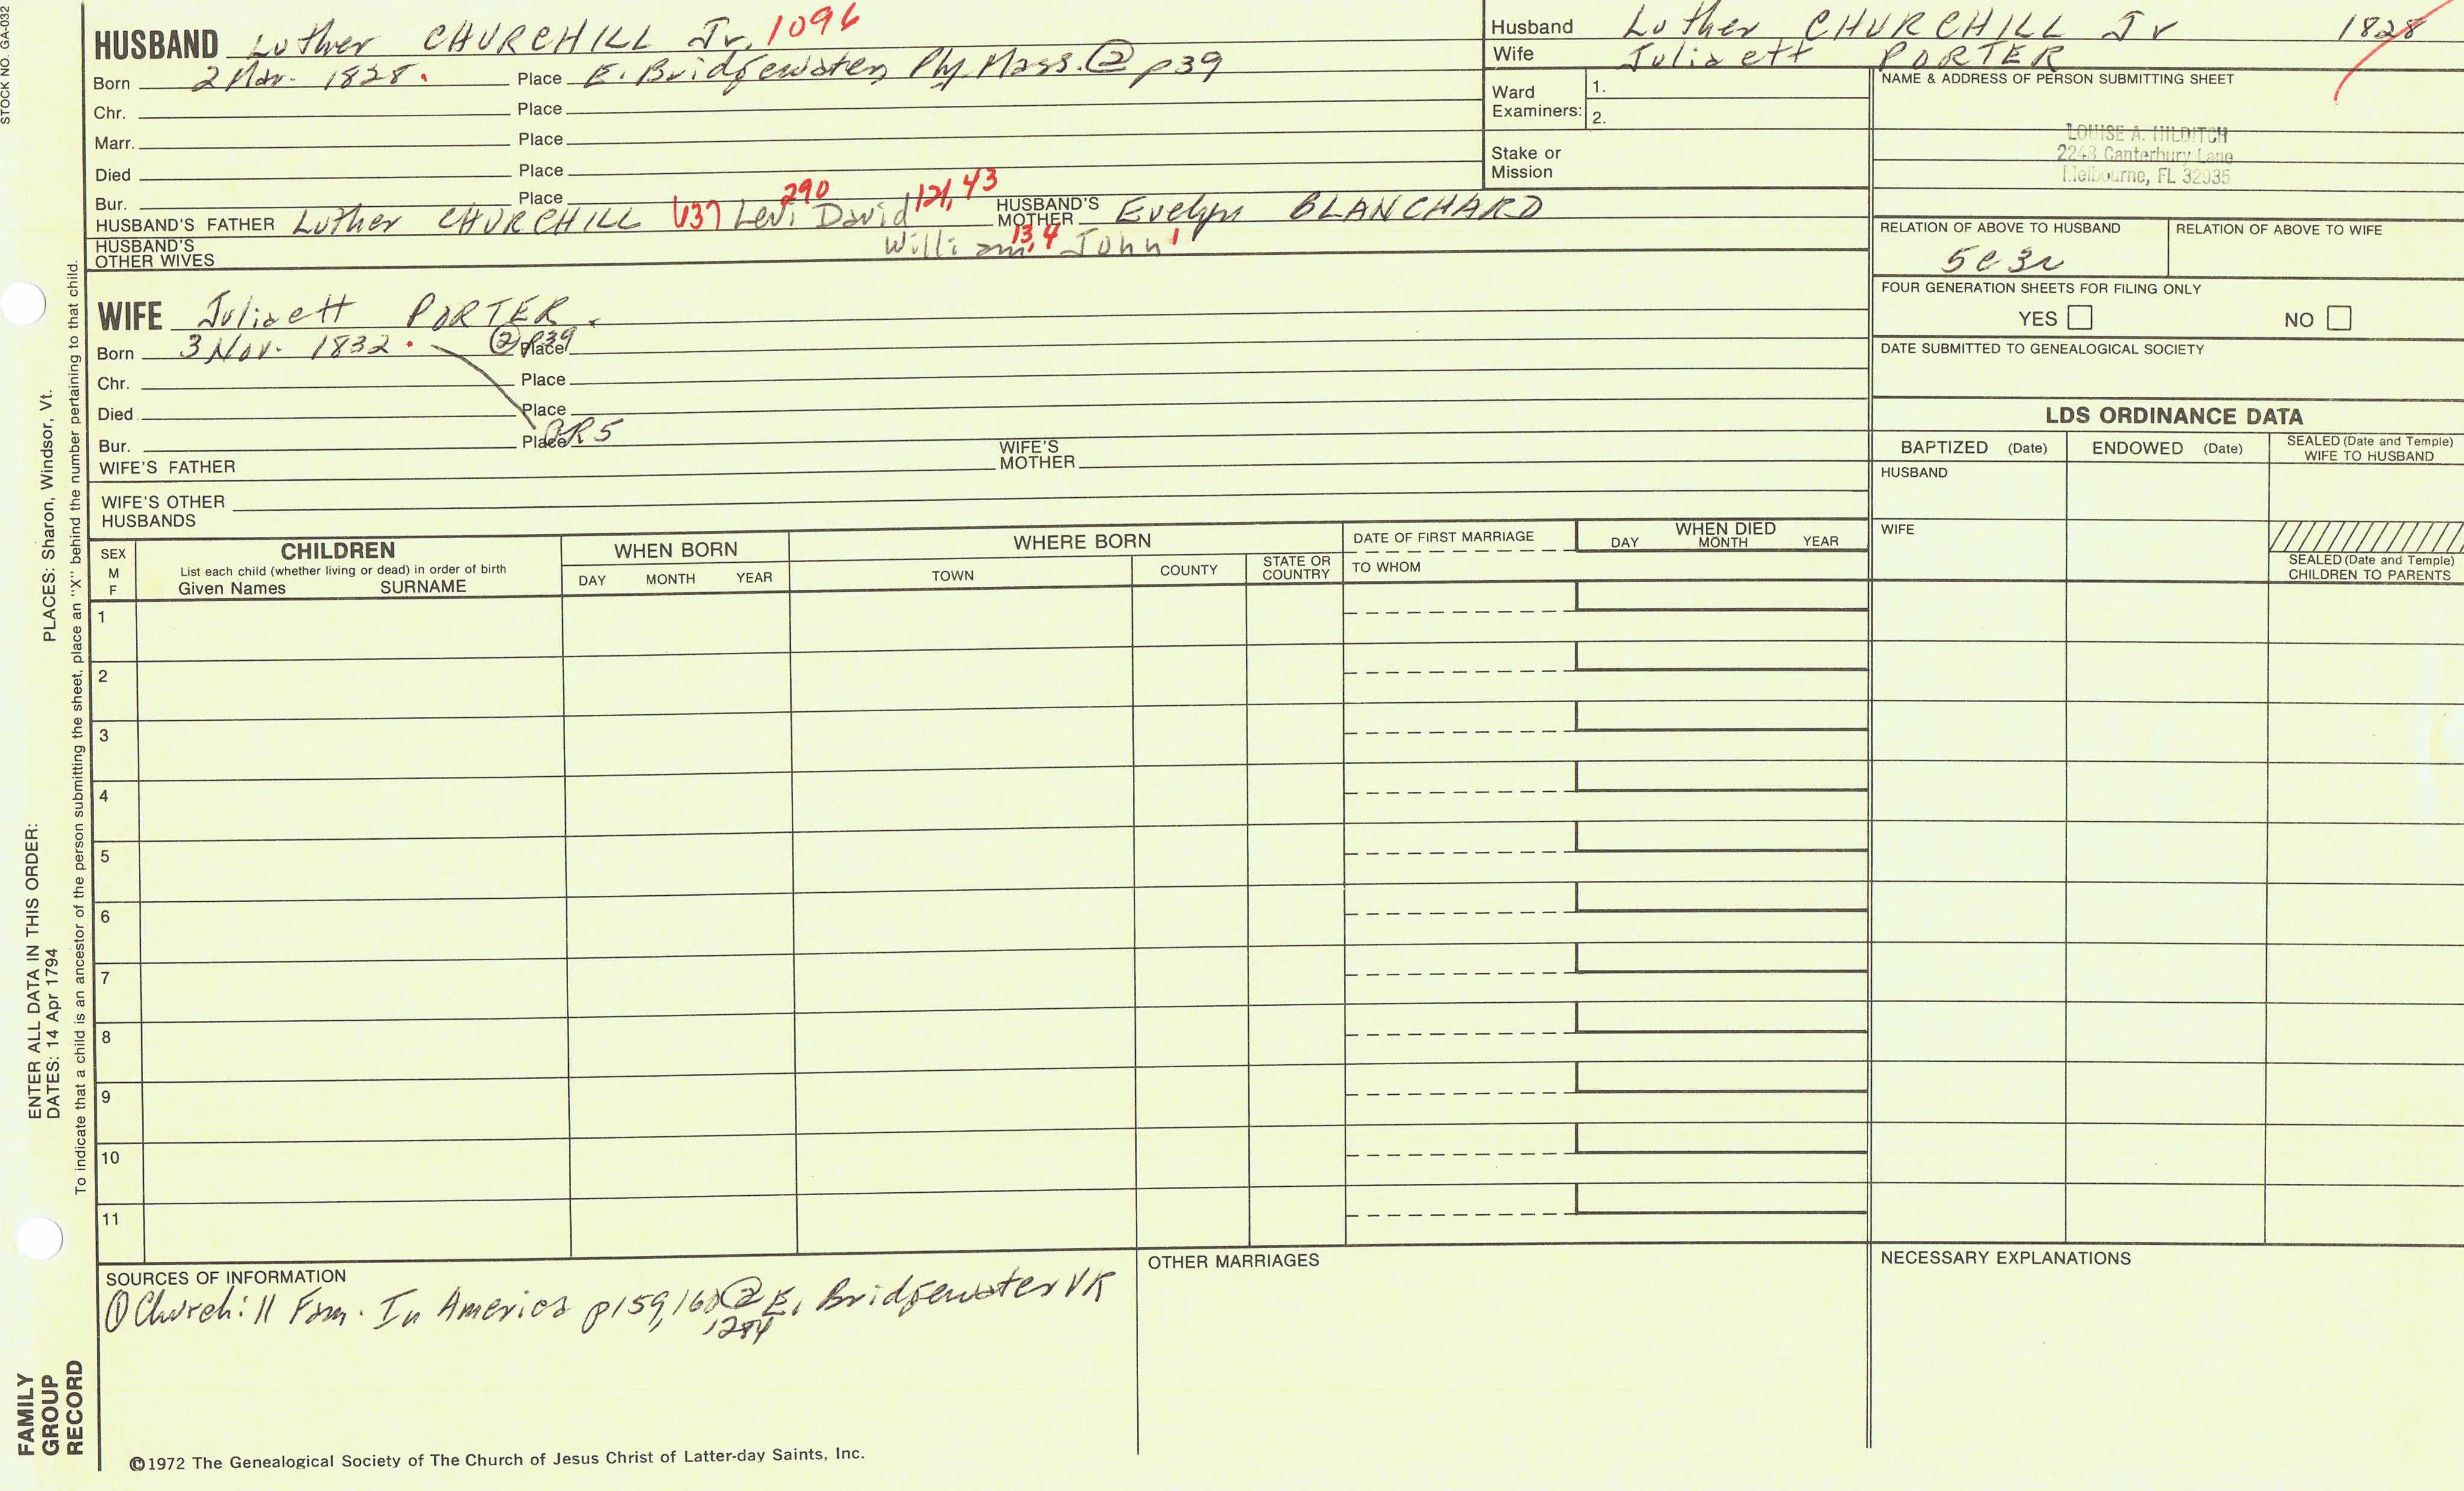 STOCK NO. GA-032
HUSBAND Luther CHURCHILL Jr. 1096
Born 2 Mar. 1828. Place E. Bridgewater, Ply. Mass. ② p39
Chr. Place
Marr. Place
Died Place
Bur. Place
HUSBAND'S FATHER Luther CHURCHILL Levi 290 David 121, 43 HUSBAND'S MOTHER Evelyn BLANCHARD
HUSBAND'S OTHER WIVES William 13, 4 John 1
WIFE Juliaett PORTER
Born 3 Nov. 1832. ② p39 Place
Chr. Place
Died Place
Bur. Place
WIFE'S FATHER WIFE'S MOTHER
WIFE'S OTHER HUSBANDS
Husband Luther CHURCHILL Jr 1828
Wife Juliaett PORTER
Ward Examiners: 1.
2.
Stake or Mission
NAME & ADDRESS OF PERSON SUBMITTING SHEET
LOUISE A. HILDITCH
2248 Canterbury Lane
Melbourne, FL 32935
RELATION OF ABOVE TO HUSBAND RELATION OF ABOVE TO WIFE
5c3r
FOUR GENERATION SHEETS FOR FILING ONLY
YES NO
DATE SUBMITTED TO GENEALOGICAL SOCIETY
LDS ORDINANCE DATA
BAPTIZED (Date) ENDOWED (Date) SEALED (Date and Temple) WIFE TO HUSBAND
HUSBAND
WIFE
SEALED (Date and Temple) CHILDREN TO PARENTS
SEX M F
CHILDREN
List each child (whether living or dead) in order of birth
Given Names SURNAME
WHEN BORN
DAY MONTH YEAR
WHERE BORN
TOWN COUNTY STATE OR COUNTRY
DATE OF FIRST MARRIAGE
TO WHOM
WHEN DIED
DAY MONTH YEAR
1
2
3
4
5
6
7
8
9
10
11
SOURCES OF INFORMATION
① Churchill Fam. In America p159,160 ② E. Bridgewater VR
,284
OTHER MARRIAGES
NECESSARY EXPLANATIONS
PLACES: Sharon, Windsor, Vt.
ENTER ALL DATA IN THIS ORDER:
DATES: 14 Apr 1794
To indicate that a child is an ancestor of the person submitting the sheet, place an "X" behind the number pertaining to that child.
FAMILY
GROUP
RECORD
©1972 The Genealogical Society of The Church of Jesus Christ of Latter-day Saints, Inc.